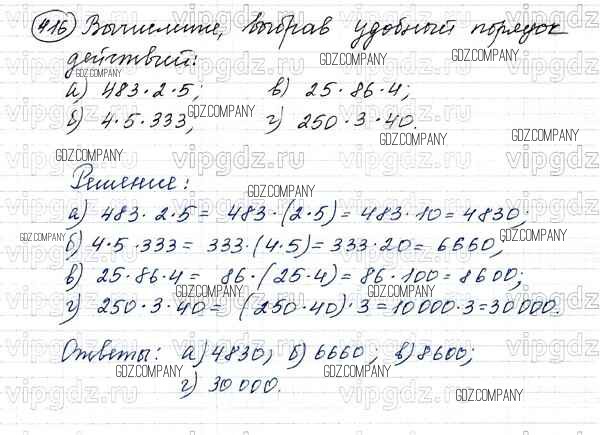 416 Вычислите, выбрав удобный порядок
действий:
а) 483 · 2 · 5; в) 25 · 86 · 4;
б) 4 · 5 · 333; г) 250 · 3 · 40.
Решение:
а) 483 · 2 · 5 = 483 · (2 · 5) = 483 · 10 = 4830;
б) 4 · 5 · 333 = 333 · (4 · 5) = 333 · 20 = 6660;
в) 25 · 86 · 4 = 86 · (25 · 4) = 86 · 100 = 8600;
г) 250 · 3 · 40 = (250 · 40) · 3 = 10000 · 3 = 30000.
Ответы: а) 4830; б) 6660; в) 8600;
г) 30000.
GDZ.COMPANY
vipgdz.ru